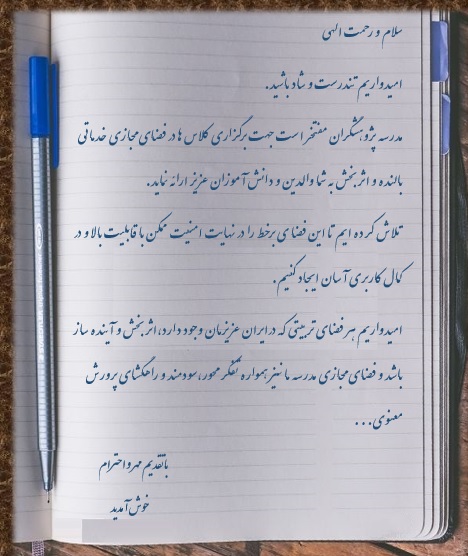 سلام و رحمت الهی
امیدواریم تندرست و شاد باشید.
مدرسه پژوهشگران مفتخر است جهت برگزاری کلاس ها در فضای مجازی خدماتی
بالنده و اثربخش به شما والدین و دانش آموزان عزیز ارائه نماید.
تلاش کرده ایم تا این فضای برخط را در نهایت امنیت ممکن با قابلیت بالا و در
کمال کاربری آسان ایجاد کنیم.
امیدواریم هر فضای تربیتی که در ایران عزیزمان وجود دارد، اثربخش و آینده ساز
باشد و فضای مجازی مدرسه ما نیز همواره تفکر محور، سودمند و راهگشای پرورش
معنوی...
با تقدیم مهر و احترام
خوش آمدید